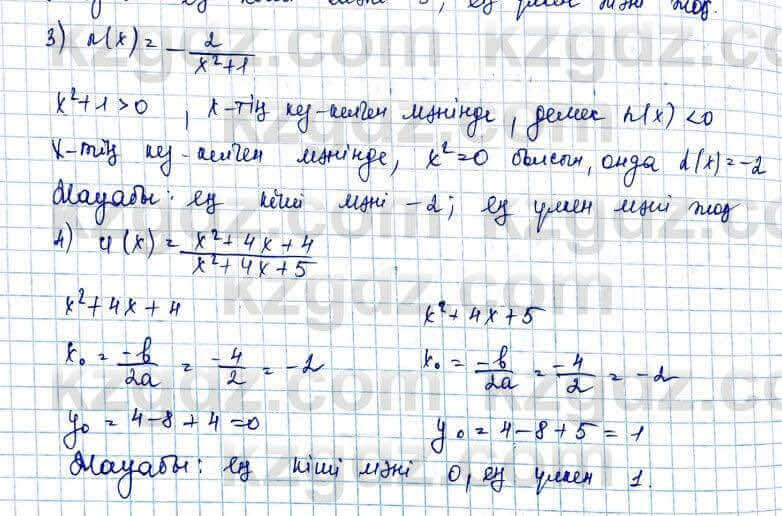 ең үлкен мәні жоқ.
3) h(x) = - 2/(x²+1)
x²+1>0, x-тің кез-келген мәнінде, демек h(x)<0
x-тің кез-келген мәнінде, x²=0 болсын, онда h(x)=-2
Жауабы: ең кіші мәні -2; ең үлкен мәні жоқ
4) φ(x) = (x²+4x+4)/(x²+4x+5)
x²+4x+4 x²+4x+5
x₀ = -b/2a = -4/2 = -2 x₀ = -b/2a = -4/2 = -2
y₀ = 4-8+4=0 y₀ = 4-8+5=1
Жауабы: ең кіші мәні 0, ең үлкен 1.
kzgdz.com